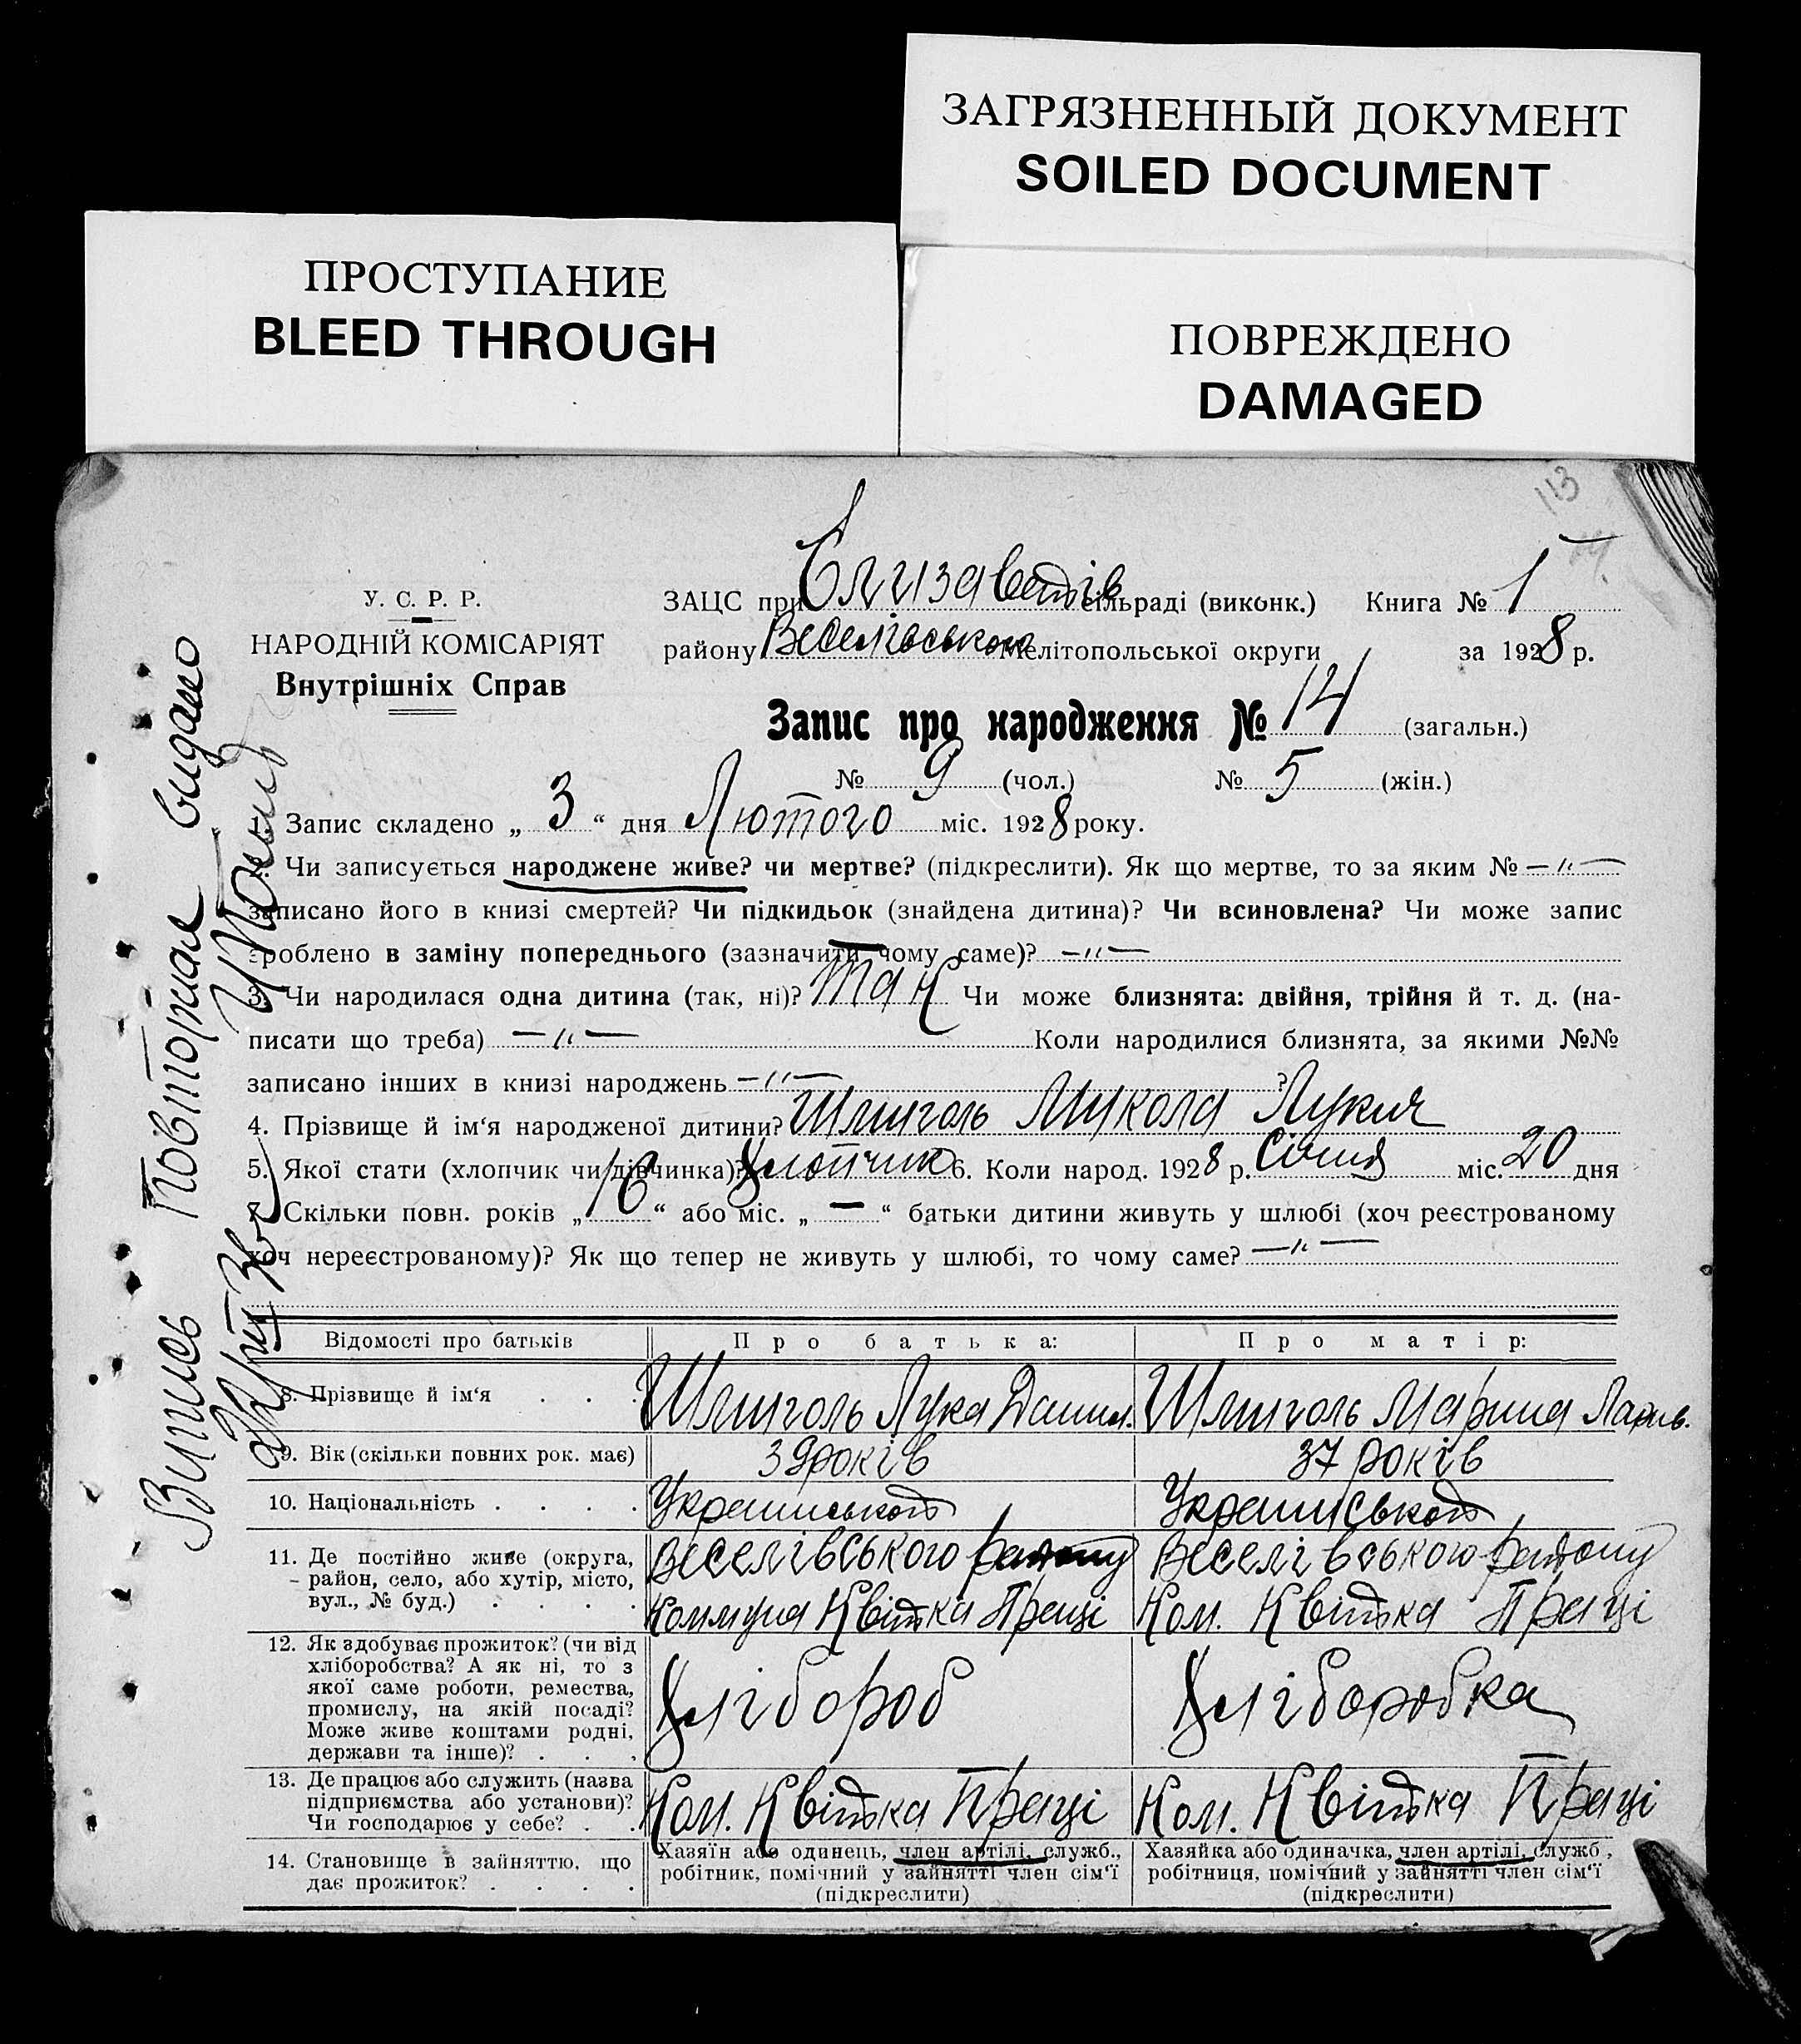 ЗАГРЯЗНЕННЫЙ ДОКУМЕНТ
SOILED DOCUMENT
ПРОСТУПАНИЕ
BLEED THROUGH
ПОВРЕЖДЕНО
DAMAGED
113
У. С. Р. Р.
НАРОДНІЙ КОМІСАРІЯТ
Внутрішніх Справ
ЗАЦС при Єлизаветів сільраді (виконк.) Книга № 1
району Веселівського Мелітопольської округи за 1928 р.
Запис про народження № 14 (загальн.)
№ 9 (чол.) № 5 (жін.)
1. Запис складено „ 3 “ дня Лютого міс. 1928 року.
Чи записується народжене живе? чи мертве? (підкреслити). Як що мертве, то за яким № —〃—
записано його в книзі смертей? Чи підкидьок (знайдена дитина)? Чи всиновлена? Чи може запис
зроблено в заміну попереднього (зазначити чому саме)? —〃—
3. Чи народилася одна дитина (так, ні)? Так Чи може близнята: двійня, трійня й т. д. (на-
писати що треба) —〃— Коли народилися близнята, за якими №№
записано інших в книзі народжень —〃— ?
4. Прізвище й ім‘я народженої дитини? Шлиголь Микола Лукич
5. Якої стати (хлопчик чи дівчинка)? Хлопчик 6. Коли народ. 1928 р. Січня міс. 20 дня
7. Скільки повн. років „ 16 “ або міс. „ — “ батьки дитини живуть у шлюбі (хоч реєстрованому
хоч нереєстрованому)? Як що тепер не живуть у шлюбі, то чому саме? —〃—
Відомості про батьків Про батька: Про матір:
8. Прізвище й ім‘я . . . Шлиголь Лука Данил. Шлиголь Марина
9. Вік (скільки повних рок. має) 39 років 37 років
10. Національність . . . . Української Української
11. Де постійно живе (округа,
район, село, або хутір, місто,
вул., № буд.) . . . .
Веселівського району Веселівського району
Коммуна Квітка Праці Ком. Квітка Праці
12. Як здобуває прожиток? (чи від
хліборобства? А як ні, то з
якої саме роботи, ремества,
промислу, на якій посаді?
Може живе коштами родні,
держави та інше)? . . .
Хлібороб Хліборобка
13. Де працює або служить (назва
підприємства або установи)?
Чи господарює у себе? . .
Ком. Квітка Праці Ком. Квітка Праці
14. Становище в зайняттю, що
дає прожиток? . . . .
Хазяїн або одинець, член артілі, служб.,
робітник, помічний у зайнятті член сім‘ї
(підкреслити)
Хазяйка або одиначка, член артілі, служб.,
робітниця, помічний у зайнятті член сім‘ї
(підкреслити)
Випись Повторная видано